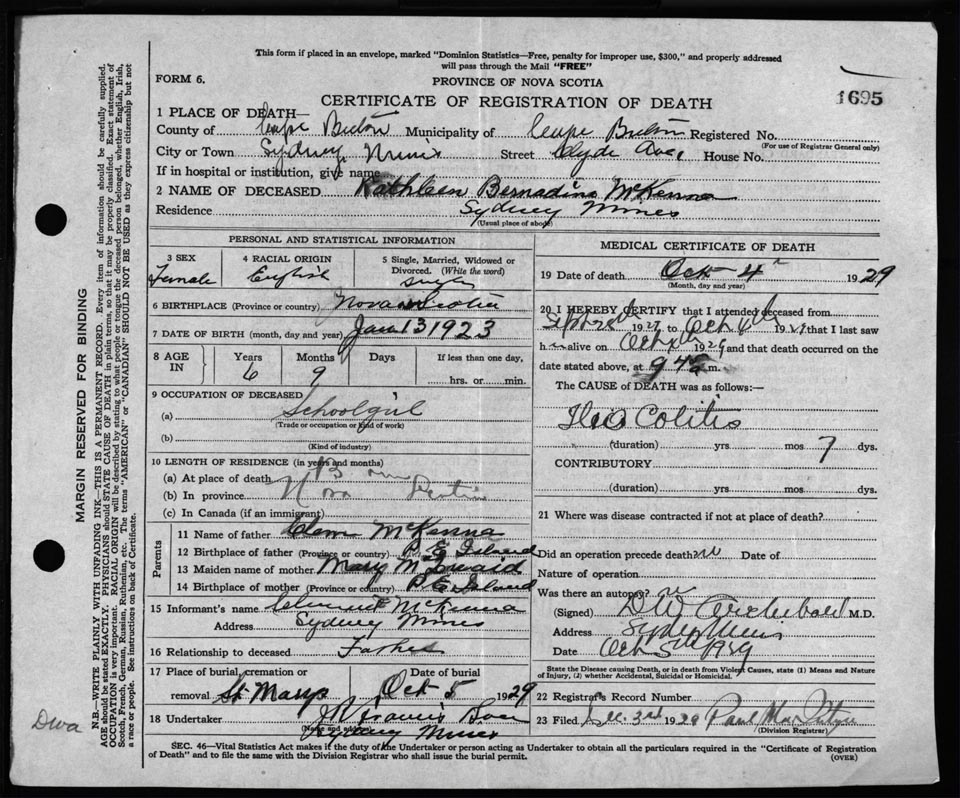 This form if placed in an envelope, marked "Dominion Statistics—Free, penalty for improper use, $300," and properly addressed
will pass through the Mail "FREE"
FORM 6.
PROVINCE OF NOVA SCOTIA
CERTIFICATE OF REGISTRATION OF DEATH
1695
1 PLACE OF DEATH—
County of Cape Breton Municipality of Cape Breton Registered No.
(For use of Registrar General only)
City or Town Sydney Mines Street Clyde Ave, House No.
If in hospital or institution, give name
2 NAME OF DECEASED Kathleen Bernadine McKenna
Residence Sydney Mines
(Usual place of abode)
PERSONAL AND STATISTICAL INFORMATION
3 SEX 4 RACIAL ORIGIN 5 Single, Married, Widowed or
Divorced. (Write the word)
Female English Single
6 BIRTHPLACE (Province or country) Nova Scotia
7 DATE OF BIRTH (month, day and year) Jan 13 1923
8 AGE IN Years Months Days If less than one day,
6 9 hrs. or min.
9 OCCUPATION OF DECEASED
(a) Schoolgirl
(Trade or occupation or kind of work)
(b)
(Kind of industry)
10 LENGTH OF RESIDENCE (in years and months)
(a) At place of death Born
(b) In province Nova Scotia
(c) In Canada (if an immigrant)
Parents
11 Name of father Clem McKenna
12 Birthplace of father (Province or country) P. E. Island
13 Maiden name of mother Mary
14 Birthplace of mother (Province or country) P. E. Island
15 Informant's name Clement McKenna
Address Sydney Mines
16 Relationship to deceased Father
17 Place of burial, cremation or Date of burial
removal St. Marys Oct 5 1929
18 Undertaker J. V. Francis
(Name and address)
Sydney Mines
MEDICAL CERTIFICATE OF DEATH
19 Date of death Oct 4 1929
(Month, day and year)
20 I HEREBY CERTIFY that I attended deceased from
Sept 28 1929 to Oct 4th 1929 that I last saw
h alive on Oct 1929 and that death occurred on the
date stated above, at 9 m.
The CAUSE of DEATH was as follows:—
Ileo Colitis
(duration) yrs mos 7 dys.
CONTRIBUTORY
(duration) yrs mos dys.
21 Where was disease contracted if not at place of death?
Did an operation precede death? no Date of
Nature of operation
Was there an autopsy? no
(Signed) D W Archibald M.D.
Address Sydney Mines
Date Oct 5th 1929
State the Disease causing Death, or in death from Violent Causes, state (1) Means and Nature
of Injury, (2) whether Accidental, Suicidal or Homicidal.
22 Registrar's Record Number
23 Filed Dec. 3rd 1929 Paul MacIntyre
(Division Registrar)
SEC. 46—Vital Statistics Act makes it the duty of the Undertaker or person acting as Undertaker to obtain all the particulars required in the "Certificate of Registration
of Death" and to file the same with the Division Registrar who shall issue the burial permit.
(OVER)
MARGIN RESERVED FOR BINDING
N.B.—WRITE PLAINLY WITH UNFADING INK—THIS IS A PERMANENT RECORD. Every item of information should be carefully supplied.
AGE should be stated EXACTLY. PHYSICIANS should STATE CAUSE OF DEATH in plain terms, so that it may be properly classified. Exact statement of
OCCUPATION is very important. RACIAL ORIGIN will be described by stating to what people or tongue the deceased person belonged, whether English, Irish,
Scotch, French, German, Russian, Ruthenian, etc. The terms "AMERICAN" or "CANADIAN" SHOULD NOT BE USED as they express citizenship but not
a race or people. See instructions on back of Certificate.